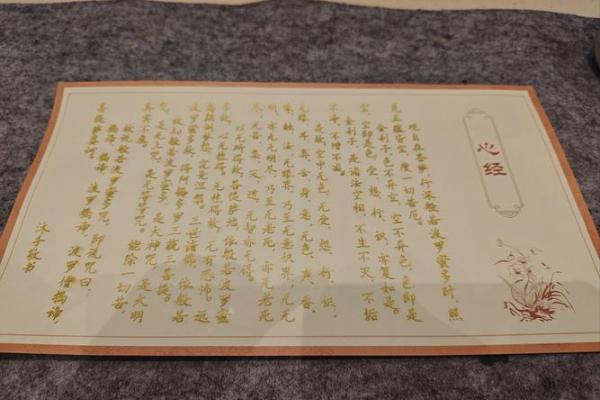 心经
观自在菩萨,行深般若波罗蜜多时,照
见五蕴皆空,度一切苦厄。
舍利子,色不异空,空不异色,色即是
空,空即是色,受、想、行、识,亦复如是。
舍利子,是诸法空相,不生不灭,不垢
不净,不增不减。
是故,空中无色,无受、想、行、识;
无眼、耳、鼻、舌、身、意;无色、声、香、
味、触、法;无眼界,乃至无意识界;无无
明,亦无无明尽,乃至无老死,亦无老死
尽;无苦、集、灭、道,无智亦无得。
以无所得故,菩提萨埵,依般若波罗蜜
多故,心无挂碍,无挂碍故,无有恐怖,远
离颠倒梦想,究竟涅槃。三世诸佛,依般若
波罗蜜多故,得阿耨多罗三藐三菩提。
故知般若波罗蜜多,是大神咒,是大明
咒,是无上咒,是无等等咒,能除一切苦,
真实不虚。
故说般若波罗蜜多咒,即说咒曰:
揭谛,揭谛,波罗揭谛,波罗僧揭谛,
菩提萨婆诃。
沐手敬书